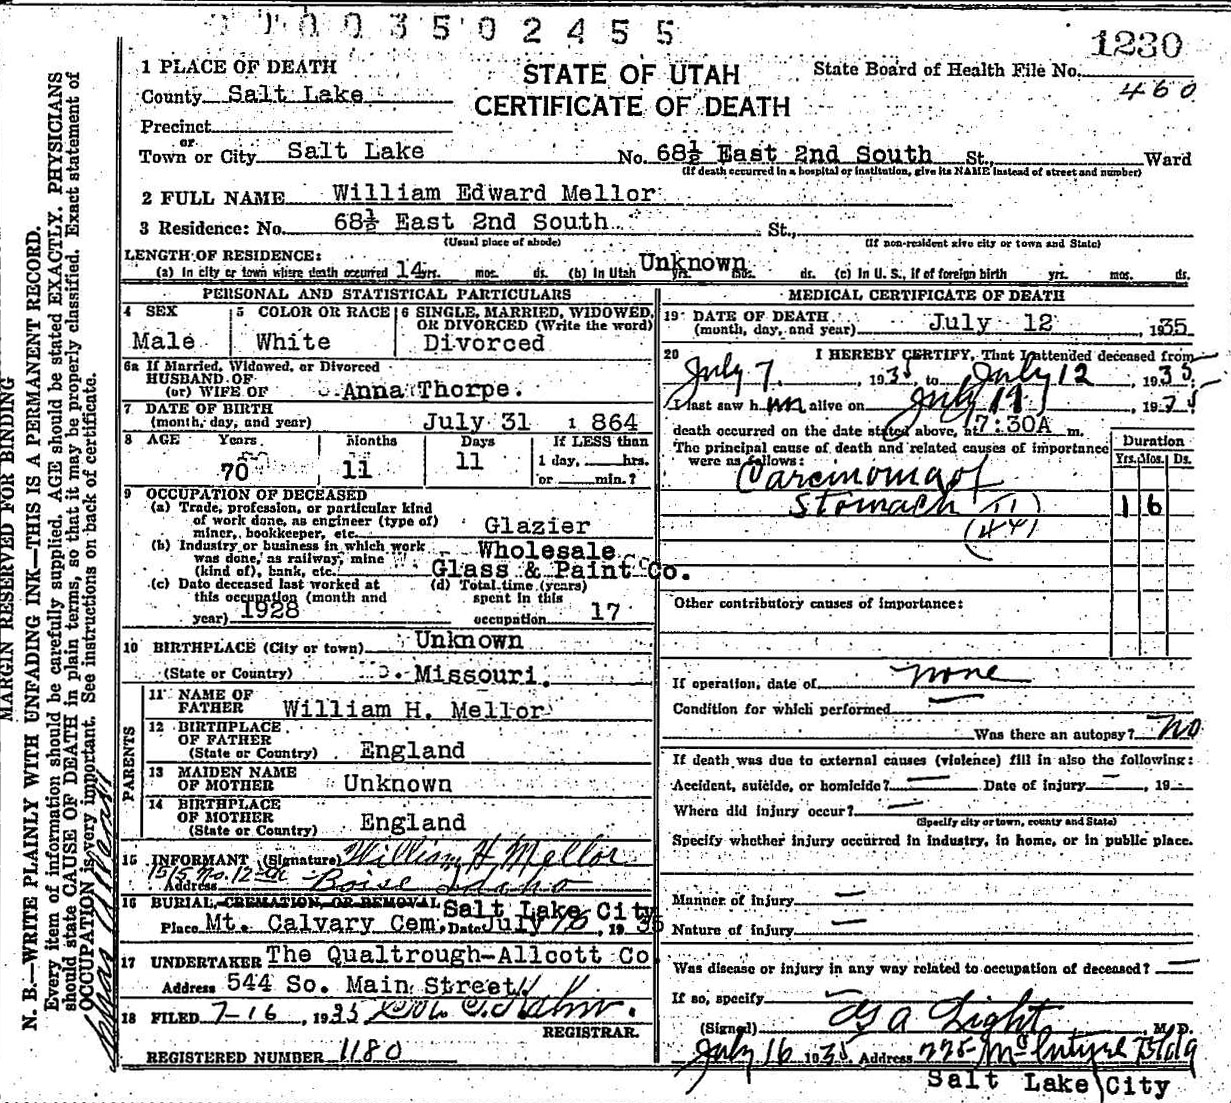 0003502455
1230
1 PLACE OF DEATH
STATE OF UTAH
State Board of Health File No.
460
County Salt Lake
CERTIFICATE OF DEATH
Precinct
or
Town or City Salt Lake No. 68½ East 2nd South St., Ward
(If death occurred in a hospital or institution, give its NAME instead of street and number)
2 FULL NAME William Edward Mellor
3 Residence: No. 68½ East 2nd South St.,
(Usual place of abode) (If non-resident give city or town and State)
LENGTH OF RESIDENCE:
(a) In city or town where death occurred 14 yrs. mos. ds. (b) In Utah Unknown yrs. mos. ds. (c) In U. S., if of foreign birth yrs. mos. ds.
PERSONAL AND STATISTICAL PARTICULARS
4 SEX
Male
5 COLOR OR RACE
White
6 SINGLE, MARRIED, WIDOWED, OR DIVORCED (Write the word)
Divorced
6a If Married, Widowed, or Divorced
HUSBAND OF
(or) WIFE OF Anna Thorpe
7 DATE OF BIRTH
(month, day, and year) July 31 1864
8 AGE Years Months Days If LESS than
70 11 11 1 day, hrs.
or min.?
9 OCCUPATION OF DECEASED
(a) Trade, profession, or particular kind
of work done, as engineer (type of)
miner, bookkeeper, etc. Glazier
(b) Industry or business in which work
was done, as railway, mine
(kind of), bank, etc. Wholesale
Glass & Paint Co.
(c) Date deceased last worked at
this occupation (month and
year) 1928
(d) Total time (years)
spent in this
occupation 17
10 BIRTHPLACE (City or town) Unknown
(State or Country) Missouri.
PARENTS
11 NAME OF
FATHER William H. Mellor
12 BIRTHPLACE
OF FATHER
(State or Country) England
13 MAIDEN NAME
OF MOTHER Unknown
14 BIRTHPLACE
OF MOTHER
(State or Country) England
15 INFORMANT (Signature) William H Mellor
1515 No. 12th
Address Boise Idaho
16 BURIAL, CREMATION, OR REMOVAL Salt Lake City
Place Mt. Calvary Cem. Date July 16, 1935
17 UNDERTAKER The Qualtrough-Allcott Co.
Address 544 So. Main Street
18 FILED 7-16, 1935
REGISTRAR.
REGISTERED NUMBER 1180
MEDICAL CERTIFICATE OF DEATH
19 DATE OF DEATH
(month, day, and year) July 12, 1935
20 I HEREBY CERTIFY, That I attended deceased from
July 7, 1935 to July 12, 1935
I last saw him alive on July 11, 1935
death occurred on the date stated above, at 7:30A m.
The principal cause of death and related causes of importance
were as follows:
Duration
Yrs. Mos. Ds.
Carcinoma of
Stomach 1 6
(44)
Other contributory causes of importance:
If operation, date of none
Condition for which performed
Was there an autopsy? No
If death was due to external causes (violence) fill in also the following:
Accident, suicide, or homicide? Date of injury, 19
Where did injury occur?
(Specify city or town, county and State)
Specify whether injury occurred in industry, in home, or in public place.
Manner of injury
Nature of injury
Was disease or injury in any way related to occupation of deceased?
If so, specify
(Signed) Light, M. D.
July 16 1935. Address 225 McIntyre Bldg
Salt Lake City
MARGIN RESERVED FOR BINDING
N. B.—WRITE PLAINLY WITH UNFADING INK—THIS IS A PERMANENT RECORD.
Every item of information should be carefully supplied. AGE should be stated EXACTLY. PHYSICIANS
should state CAUSE OF DEATH in plain terms, so that it may be properly classified. Exact statement of
OCCUPATION is very important. See instructions on back of certificate.